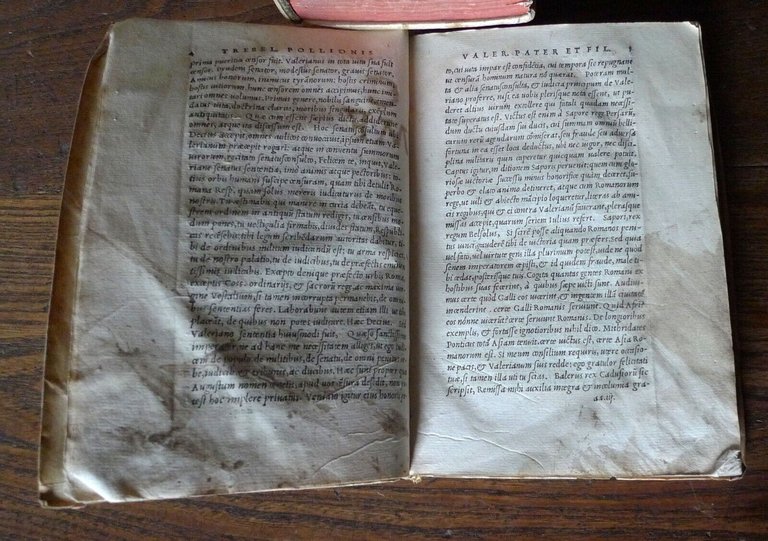 4 TREBEL. POLLIONIS
prima pueritia censor fuit. Valerianus in tota uita sua fuit
censor. Prudens senator, modestus senator, grauis senator.
Amicus bonorum, inimicus tyrannorum: hostis criminum,
hostis uitiorum hunc censorem omnes accipimus, hunc imi
tari omnes uolumus. Primus genere, nobilis sanguine,
uita, doctrina clarus, moribus singularis, exemplum
antiquitatis. Quæ cum essent sæpius dicta, addiderunt
omnes, atque ita discessum est. Hoc senatusconsultum ubi
Decius accepit, omnes aulicos conuocauit, ipsum etiam Va
lerianum præcepit rogari: atque in conuentu summorum
uirorum recitato senatusconsulto, Felicem te, inquit, Va
leriane totius senatus sententia, imo animis atque pectoribus: to
tius orbis humani suscipe censuram, quam tibi detulit Ro
mana Resp. quam solus mereris iudicaturus de moribus
nostris. Tu æstimabis qui manere in curia debeant, tu eque
strem ordinem in antiquum statum rediges, tu censibus mo
dum pones, tu uectigalia firmabis,
tibi legum scribendarum autoritas dabitur, ti
bi de ordinibus militum iudicandum est; tu arma respicies,
tu de nostro palatio, tu de iudicibus, tu de præfectis eminen
tissimis iudicabis. Excepto denique præfecto urbis Romæ
exceptis Coss. ordinariis, & sacrorum rege, ac maxima uir
gine Vestalium, si tamen incorrupta permanebit, de omni
bus sententias feres. Laborabunt autem etiam illi ut tibi
placeant, de quibus non potes iudicare. Hæc Decius. Sed
Valeriano sententia huiusmodi fuit. Quæso sanctissime
imperator, ne ad hanc me necessitatem alliges,
de populo, de militibus, de senatu, de omni
orbe iudicem, tribunis, ac ducibus. Hæc sunt propter quæ
Augustum nomen tenetis, apud uos censura desedit, non po
test hoc implere priuatus. Veniam igitur eius honoris pe
VALER. PATER ET FIL. 5
to, cui uita impar est, confidentia, cui tempora sic repugnant
ut censuram hominum natura non quærat. Poteram mul
ta & alia senatusconsulta, & iudicia principum de Vale
riano proferre, nisi & uobis pleraque nota essent, & pu
deret altius uirum extollere qui fatali quadam necessi
tate superatus est. Victus est enim à Sapore rege Persarum,
dum ductu cuiusdam sui ducis, cui summam omnium belli
carum rerum agendarum commiserat, seu fraude, seu aduersa
fortuna in ea esset loca deductus, ubi nec uigor, nec disci
plina militaris quin caperetur quicquam ualere potuit.
Captus igitur, in ditionem Saporis peruenit: quem cum glo
riosæ uictoriæ successu minus honorifice quàm deceret, su
perbo & elato animo detineret, atque cum Romanorum
rege, ut uili & abiecto mancipio loqueretur, literas ab ami
cis regibus, qui & ei contra Valerianum fauerant, plerasque
missas accepit, quarum seriem Iulius refert. Sapori, rex
regum Belsolus, Si scirem posse aliquando Romanos peni
tus uinci, gauderem tibi de uictoria quam præfers. Sed quia
uel fato, uel uirtute gens illa plurimum potest, uide ne quod
senem imperatorem cepisti, & id quidem fraude, male ti
bi cedat, & posteris tuis. Cogita quantas gentes Romani ex
hostibus suas fecerint, à quibus sæpe uicti sunt. Audiui
mus certe quod Galli eos uicerint, & ingentem illam ciuitatem
incenderint. certe Galli Romanis seruiunt. Quid Afri?
eos nonne uicerunt? certe seruiunt Romanis. De longioribus
exemplis, & fortasse ignotioribus nihil dico. Mithridates
Ponticus totam Asiam tenuit. certe uictus est, certe Asia Ro
manorum est. Si meum consilium requiris, utere occasio
ne pacis, & Valerianum suis redde: ego gratulor felicitati
tuæ, si tamen illa uti tu scias. Balerus rex Cadusiorum sic
scripsit, Remissa mihi auxilia integra & incolumia gra
aa iij